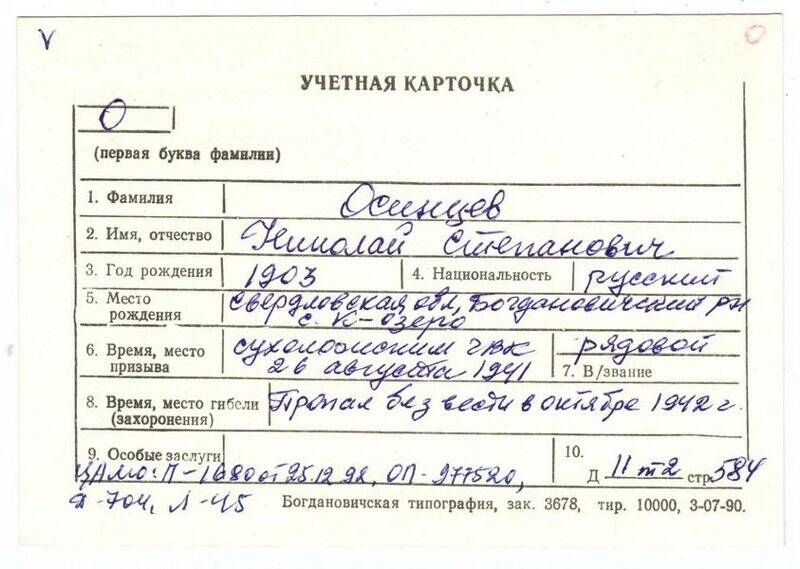 V
О
УЧЕТНАЯ КАРТОЧКА
О
(первая буква фамилии)
1. Фамилия Осинцев
2. Имя, отчество Николай Степанович
3. Год рождения 1903 4. Национальность русский
5. Место рождения Свердловская обл, Богдановичский рн
с. К-озеро
6. Время, место призыва сухоложским ГВК
26 августа 1941
рядовой
7. В/звание
8. Время, место гибели (захоронения) Пропал без вести в октябре 1942 г.
9. Особые заслуги
10.
Д 11 т2 стр. 584
ЦАМО: П-1680 от 25.12.92, ОП-977520,
Д-704, Л-45
Богдановичская типография, зак. 3678, тир. 10000, 3-07-90.